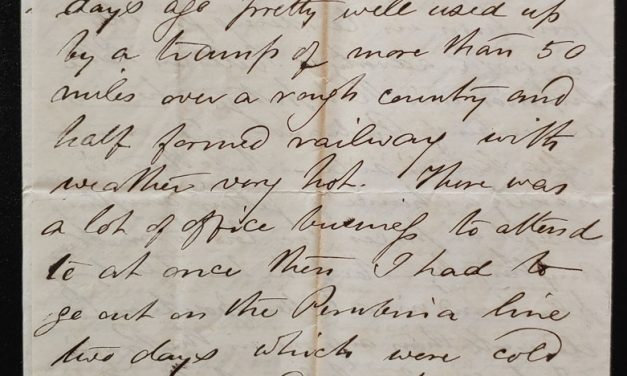 days ago pretty well used up
by a tramp of more than 50
miles over a rough country and
half formed railway with
weather very hot. There was
a lot of office business to attend
to at once then I had to
go out on the line
two days which were cold